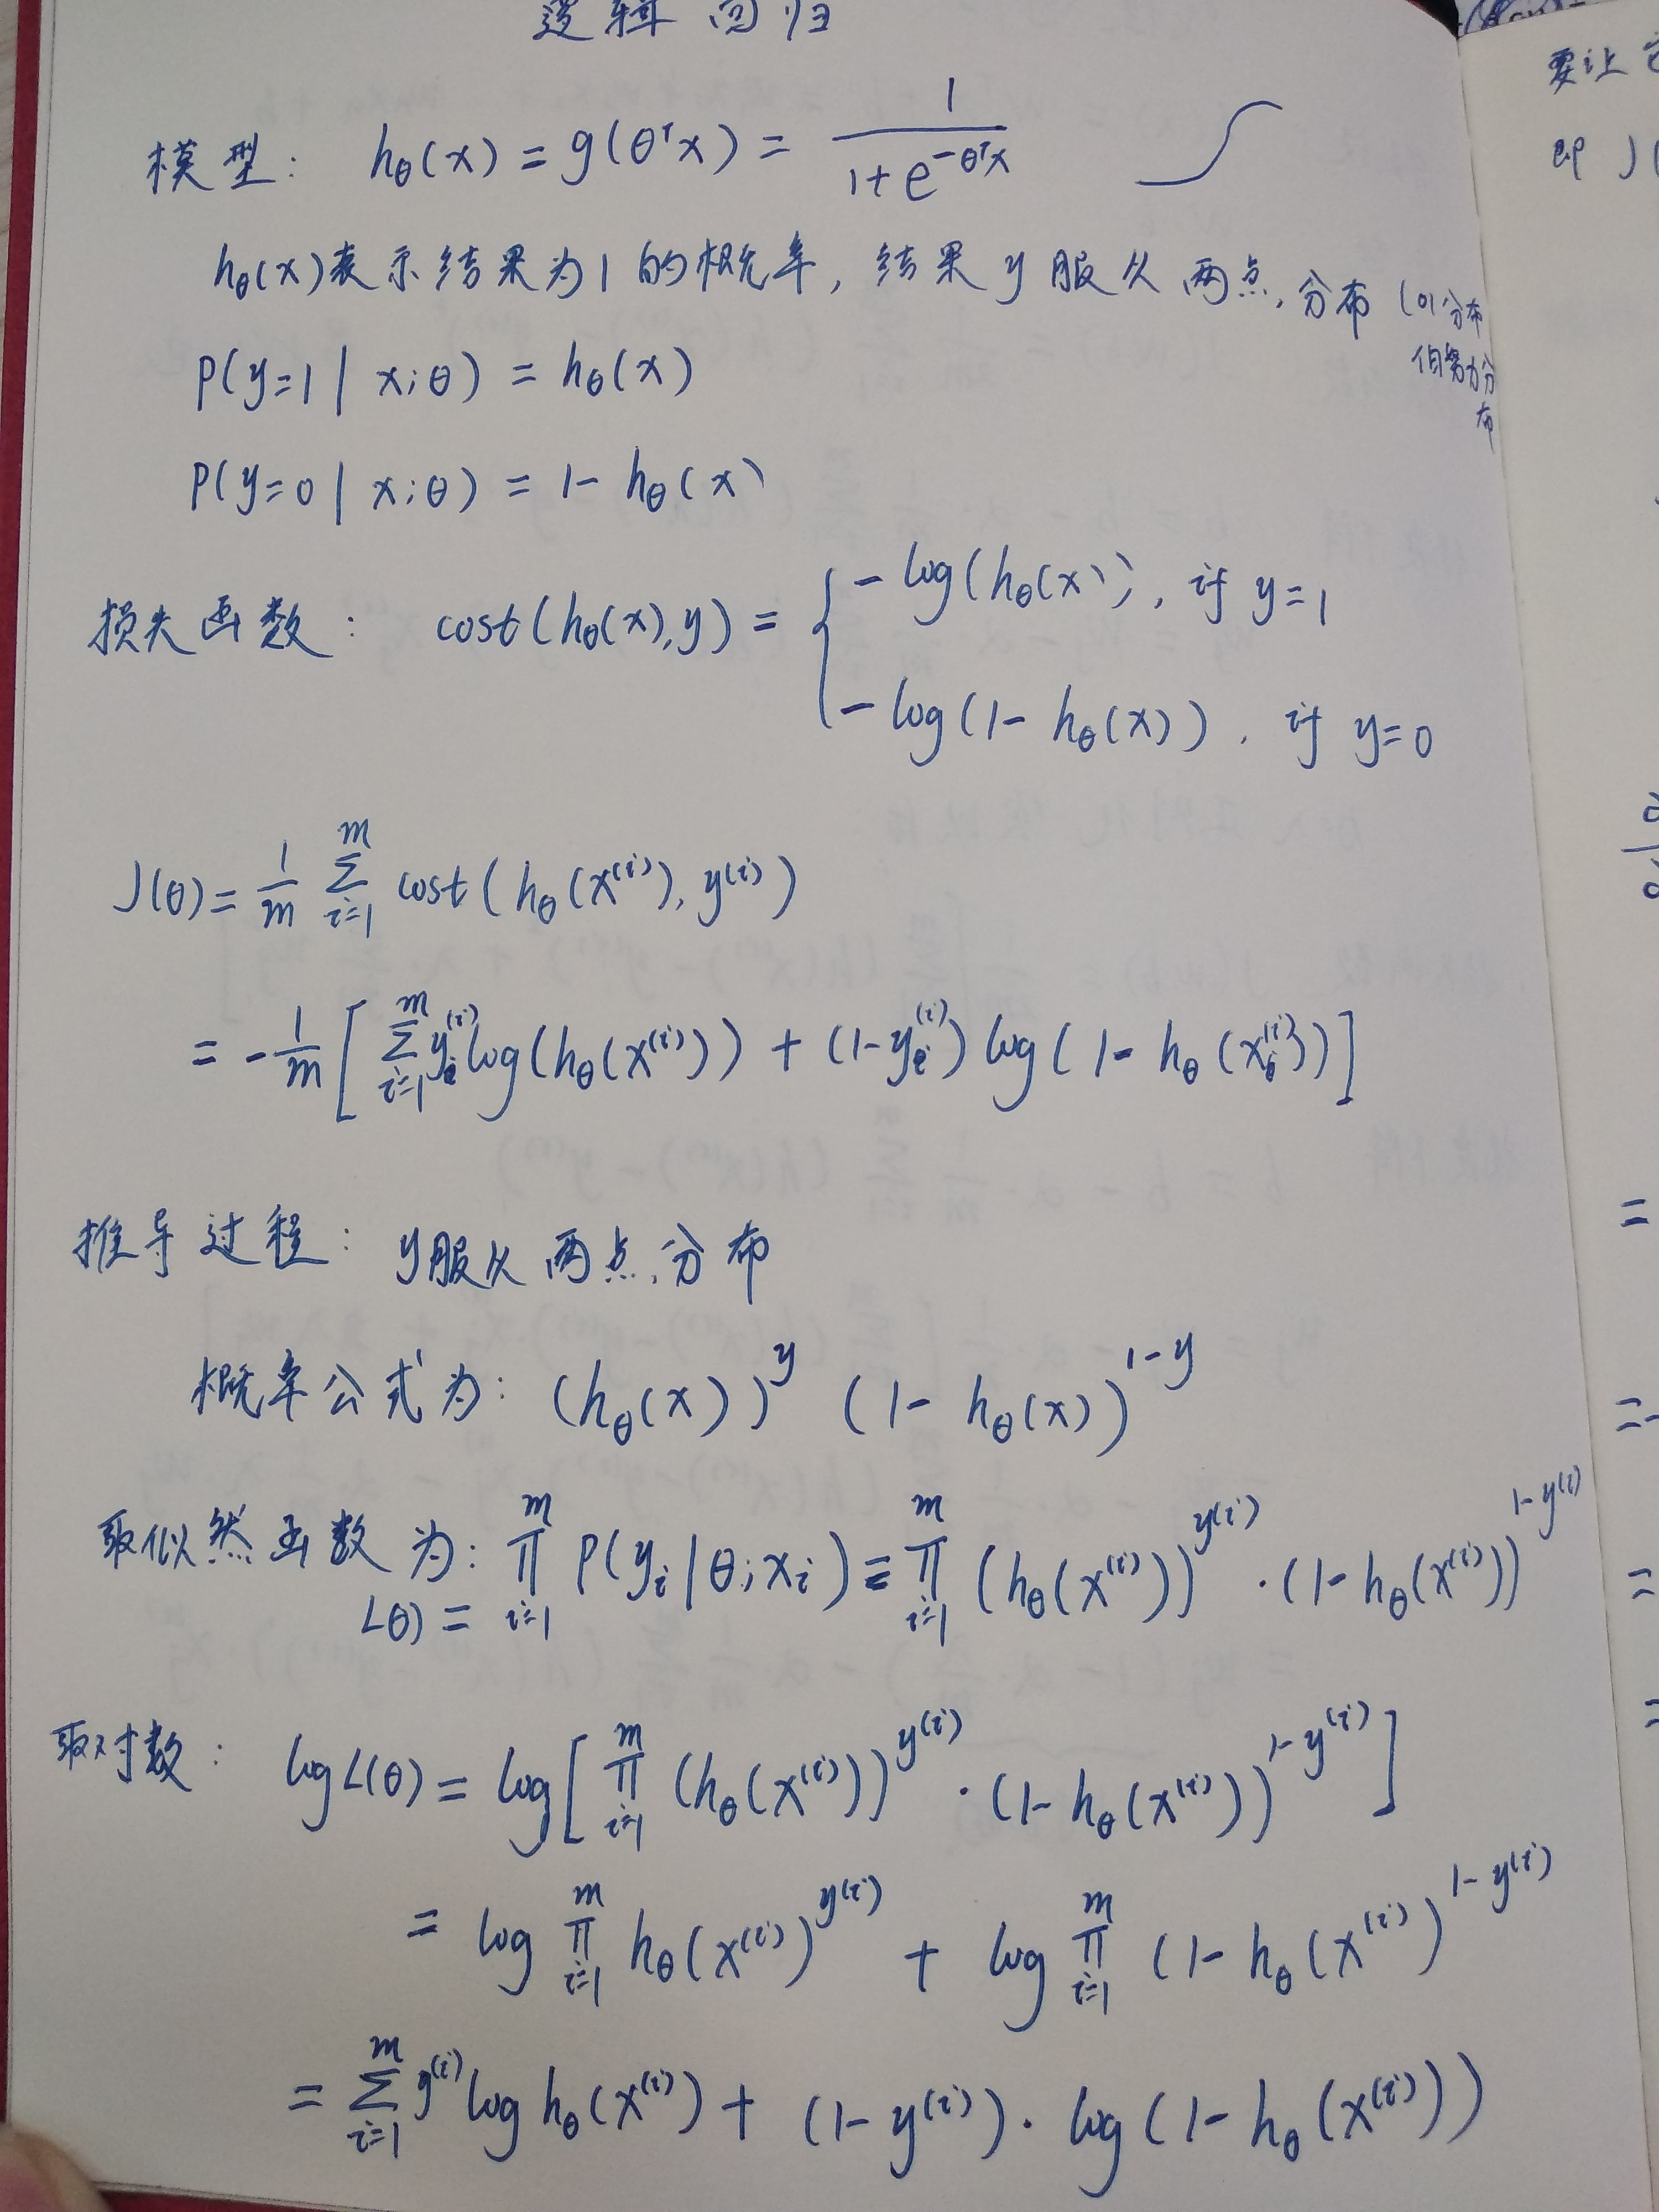 逻辑回归
模型: hθ(x) = g(θᵀx) = 1/(1+e^(-θᵀx))
hθ(x)表示结果为1的概率, 结果y服从两点分布 (01分布
伯努力分
布
P(y=1 | x;θ) = hθ(x)
P(y=0 | x;θ) = 1- hθ(x)
损失函数: cost(hθ(x),y) = { -log(hθ(x)), if y=1
-log(1- hθ(x)), if y=0
J(θ) = 1/m Σ_{i=1}^{m} cost(hθ(x⁽ⁱ⁾), y⁽ⁱ⁾)
= -1/m [ Σ_{i=1}^{m} y⁽ⁱ⁾log(hθ(x⁽ⁱ⁾)) + (1-y⁽ⁱ⁾) log(1- hθ(x⁽ⁱ⁾)) ]
推导过程: y服从两点分布
概率公式为: (hθ(x))^y (1- hθ(x))^(1-y)
取似然函数为: ∏_{i=1}^{m} P(yᵢ|θ;xᵢ) = ∏_{i=1}^{m} (hθ(x⁽ⁱ⁾))^(y⁽ⁱ⁾) · (1-hθ(x⁽ⁱ⁾))^(1-y⁽ⁱ⁾)
L(θ) =
取对数: logL(θ) = log[ ∏_{i=1}^{m} (hθ(x⁽ⁱ⁾))^(y⁽ⁱ⁾) · (1- hθ(x⁽ⁱ⁾))^(1-y⁽ⁱ⁾) ]
= log ∏_{i=1}^{m} hθ(x⁽ⁱ⁾)^(y⁽ⁱ⁾) + log ∏_{i=1}^{m} (1- hθ(x⁽ⁱ⁾)^(1-y⁽ⁱ⁾)
= Σ_{i=1}^{m} y⁽ⁱ⁾log hθ(x⁽ⁱ⁾) + (1-y⁽ⁱ⁾) · log(1- hθ(x⁽ⁱ⁾))
要让
即 J(